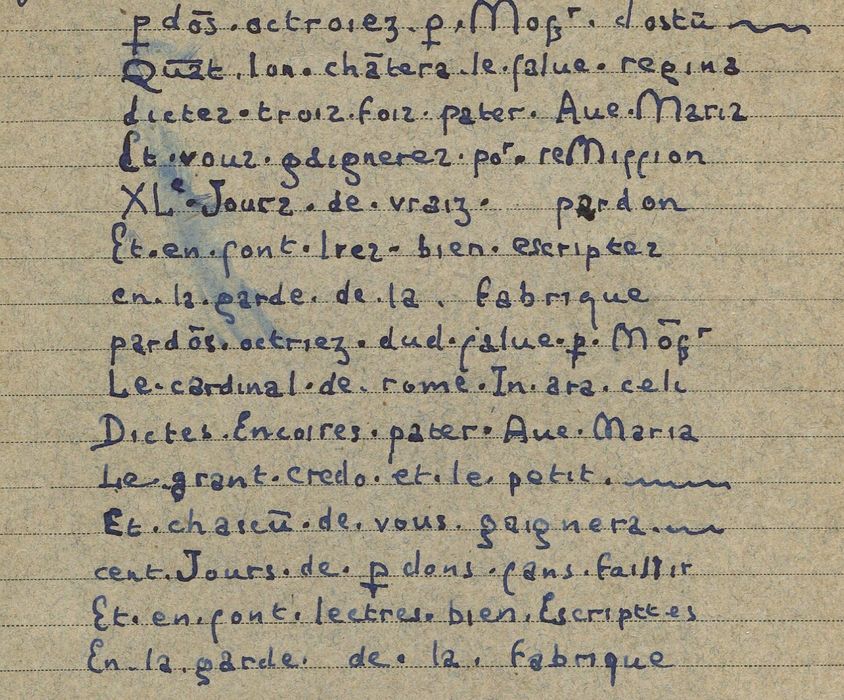 ꝑ dōs . octroiez . ꝑ . Moſʒʳ . dostū
Quāt . lon . chātera . le . salue . regina
dictez . troiz . foiz . pater . Aue . Maria
Et . vouz . gaignerez . poʳ . reMission
XLᵉ . Jourz . de . vraiz . pardon
Et . en . sont . lrez . bien . escriptez
en . la . garde . de . la . fabrique
pardōs . octriez . dud . salue . ꝑ . Mōſʒʳ
Le . cardinal . de . rome . In . ara . celi
Dictes . Encoires . pater . Aue . Maria
Le . grant . credo . et . le . petit .
Et . chascū . de . vous . gaignera .
cent . Jours . de . ꝑ dons . sans . faillir
Et . en . sont . lectres . bien . Escripttes
En . la . garde . de . la . fabrique